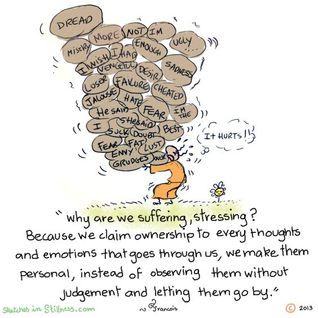 DREAD
MORE NOT IM UGLY...
MISERY ENOUGH
I WISH I HAD
VENGEFUL DESIR SADNESS
LOSOR FAILURE CHEATED
JALOUSE HATE
HE SAID FEAR IM THE
I SHE SAID BEST
SUCK DOUBT
FEAR FAT LUST
ENVY
GRUDGES
IT HURTS!!
"why are we suffering, stressing?
Because we claim ownership to every thoughts
and emotions that goes through us, we make them
personal, instead of observing them without
judgement and letting them go by."
Francois
Sketches in Stillness.com
© 2013